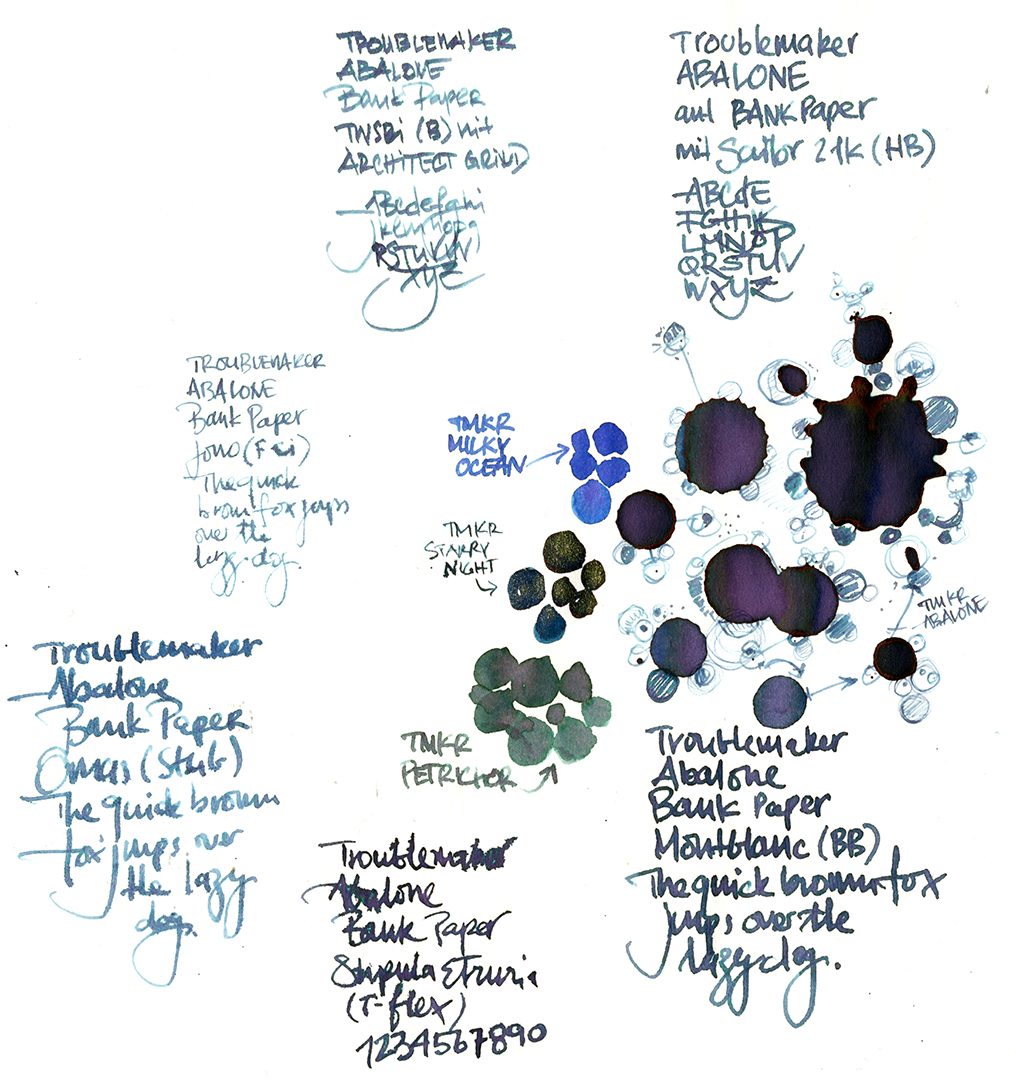 TROUBLEMAKER
ABALONE
Bank Paper
TWSBi (B) mit
ARCHITECT GRIND
ABcdefghi
jklmnopq
RSTUVW
XYZ
Troublemaker
ABALONE
auf BANK Paper
mit Sailor 21k (HB)
ABCdE
FGHIK
LMNOP
QRSTUV
WXYZ
TROUBLEMAKER
ABALONE
Bank Paper
The quick
brown fox jumps
over the
lazy dog.
TMKR
MILKY
OCEAN
TMKR
STARRY
NIGHT
TMKR
ABALONE
TMKR
PETRICHOR
Troublemaker
Abalone
Bank Paper
Omas (Stub)
The quick brown
fox jumps over
the lazy
dog.
Troublemaker
Abalone
Bank Paper
Stipula Etruria
(T-flex)
1234567890
Troublemaker
Abalone
Bank Paper
Montblanc (BB)
The quick brown fox
jumps over the
lazy dog.